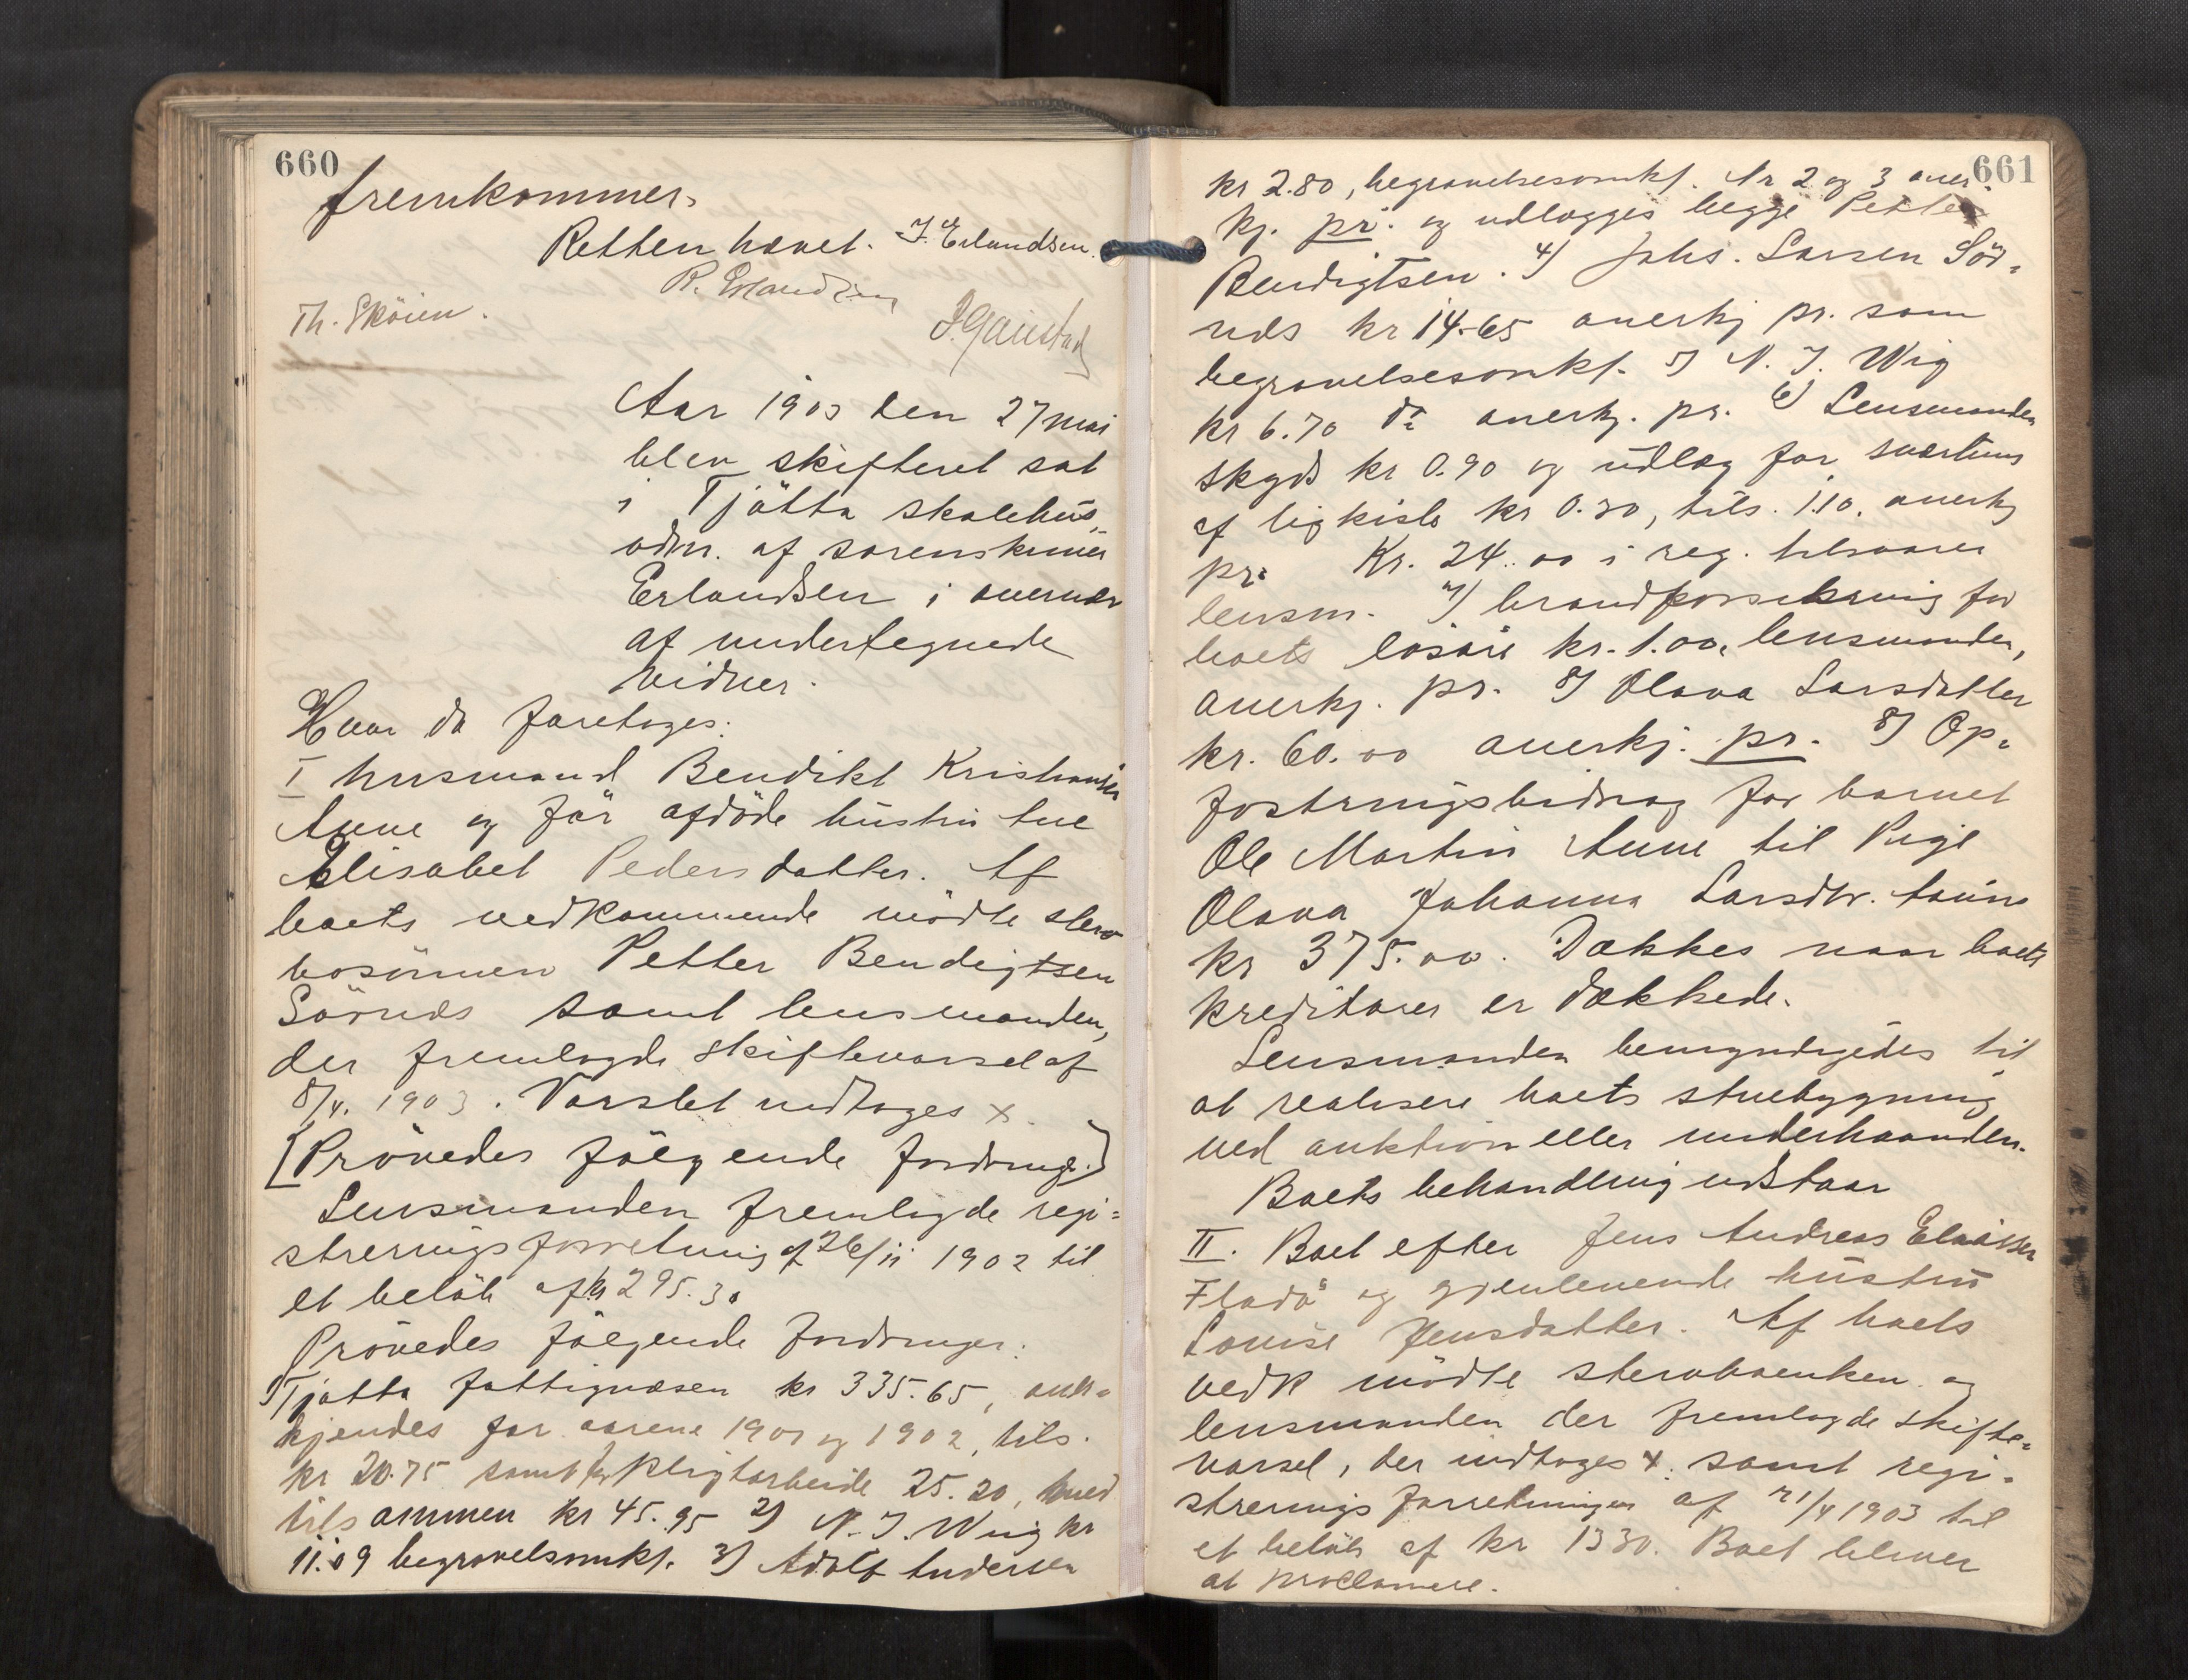 660
fremkommer.
Retten hævet. J. Erlandsen.
R. Erlandsen
Th. Sköien.
J. Gaustad
Aar 1903 den 27 mai
blev skifteret sat
i Tjötta skolehus,
adm. af sorenskriver
Erlandsen i overvær
af undertegnede
vidner.
Hvor da foretoges:
I husmand Bendikt Kristiansen
Aune og før afdöde hustru
Elisabet Pedersdatter. Af
boets vedkommende mödte sterv
bosönnen Petter Bendigtsen
Sörnes samt lensmanden,
der fremlagde skiftevarsel af
8/4. 1903. Varslet indtages x.
[Prövedes fölgende fordringer.]
Lensmanden fremlagde regi=
streringsforretning af 26/11 1902 til
et belöb af kr 295.30
Prövedes fölgende fordringer:
1) Tjötta fattigvæsen kr 335.65, aner=
kjendes for aarene 1901 og 1902, tils.
kr 20.75 samt for pligtarbeide 25.20, hved
tilsammen kr 45.95 2) N. J. Wiig kr
11.09 begravelsomk. 3) Adolf Andersen
661
kr 2.80, begravelsesomk. Nr 2 og 3 aner=
kj. pr. og udlægges begge Petter
Bendigtsen. 4) Johs. Larsen Sör=
nes kr 14.65 anerkj pr. som
begravelsesomk. 5) N. J. Wig
kr 6.70 do anerkj. pr. 6) Lensmanden
skyds kr 0.90 og udlæg for sværtning
af ligkiste kr 0.20, tils. 1.10. anerkj
pr. Kr. 24.00 i reg. tilsvarer
lensm. 7) brandforsikring for
boets lösöre kr. 1.00, lensmanden,
anerkj. pr. 8) Olava Larsdatter
kr. 60.00 anerkj. pr. 8) Op=
fostringsbidrag for barnet
Ole Martin Aune til Pige
Olava Johanna Larsdtr.
kr 375.00. Dækkes naar boets
kreditorer er dækkede.
Lensmanden bemyndigedes til
at realisere boets stuebygning
ved auktion eller underhaanden.
Boets behandling udstaar
II. Boet efter Jens Andreas Eliassen
Fladö og gjenlevende hustru
Louise Jensdatter. Af boets
vedk mödte stervboenken og
lensmanden der fremlagde skifte=
varsel, der indtages x. samt regi=
streringsforretningen af 21/4 1903 til
et belöb af kr 1330. Boet bliver
at proclamere.